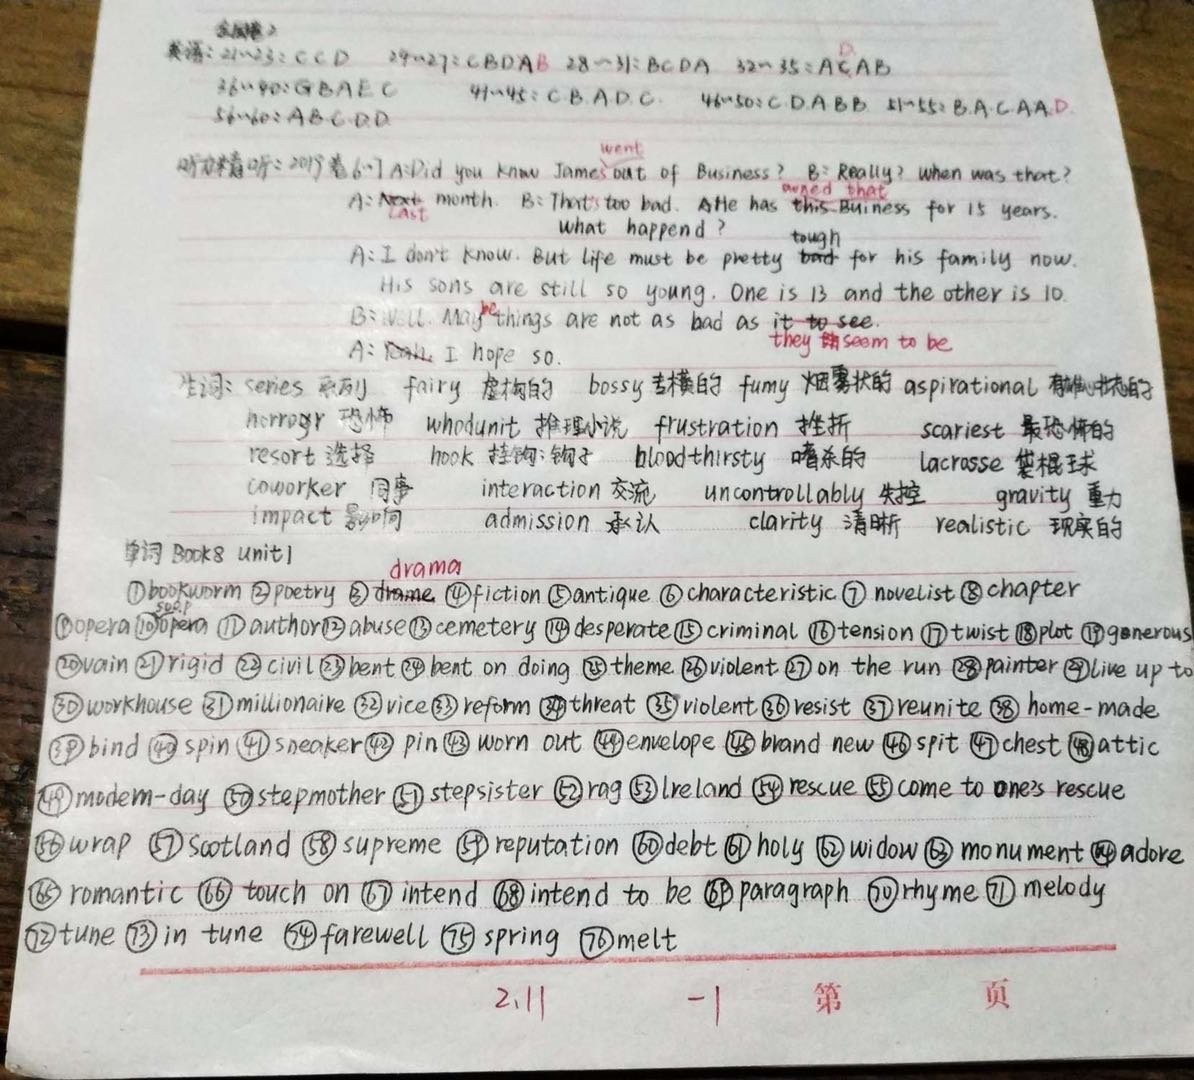 英语: 21~23: C C D 24~27: C B D A B 28~31: B C D A 32~35: A C D A B
36~40: G B A E C 41~45: C.B.A.D.C. 46~50: C.D.A B B 51~55: B.A.C.A A.D.
56~60: A B C.D.D.
听力精听: 2019卷 6-7 A: Did you know James went out of Business? B: Really? When was that?
A: Next Last month. B: That's too bad. He has this owned that Buiness for 15 years.
What happend?
A: I don't know. But life must be pretty bad tough for his family now.
His sons are still so young. One is 13 and the other is 10.
B: Well. Maybe things are not as bad as it to see.
they seem to be
A: Yeah. I hope so.
生词: series 系列 fairy 虚构的 bossy 专横的 fumy 烟雾状的 aspirational 有雄心壮志的
horror 恐怖 whodunit 推理小说 frustration 挫折 scariest 最恐怖的
resort 选择 hook 挂钩;钩子 bloodthirsty 嗜杀的 lacrosse 袋棍球
coworker 同事 interaction 交流 uncontrollably 失控 gravity 重力
impact 影响 admission 承认 clarity 清晰 realistic 现实的
单词 Book8 Unit1
①bookworm ②poetry ③drame drama ④fiction ⑤antique ⑥characteristic ⑦novelist ⑧chapter
⑨opera ⑩soap opera ⑪author ⑫abuse ⑬cemetery ⑭desperate ⑮criminal ⑯tension ⑰twist ⑱plot ⑲generous
⑳vain ㉑rigid ㉒civil ㉓bent ㉔bent on doing ㉕theme ㉖violent ㉗on the run ㉘painter ㉙live up to
㉚workhouse ㉛millionaire ㉜vice ㉝reform ㉞threat ㉟violent ㊱resist ㊲reunite ㊳home-made
㊴bind ㊵spin ㊶sneaker ㊷pin ㊸worn out ㊹envelope ㊺brand new ㊻spit ㊼chest ㊽attic
㊾modern-day ㊿stepmother (51)stepsister (52)rag (53)Ireland (54)rescue (55)come to one's rescue
(56)wrap (57)Scotland (58)supreme (59)reputation (60)debt (61)holy (62)widow (63)monument (64)adore
(65)romantic (66)touch on (67)intend (68)intend to be (69)paragraph (70)rhyme (71)melody
(72)tune (73)in tune (74)farewell (75)spring (76)melt
2.11 -1 第 页